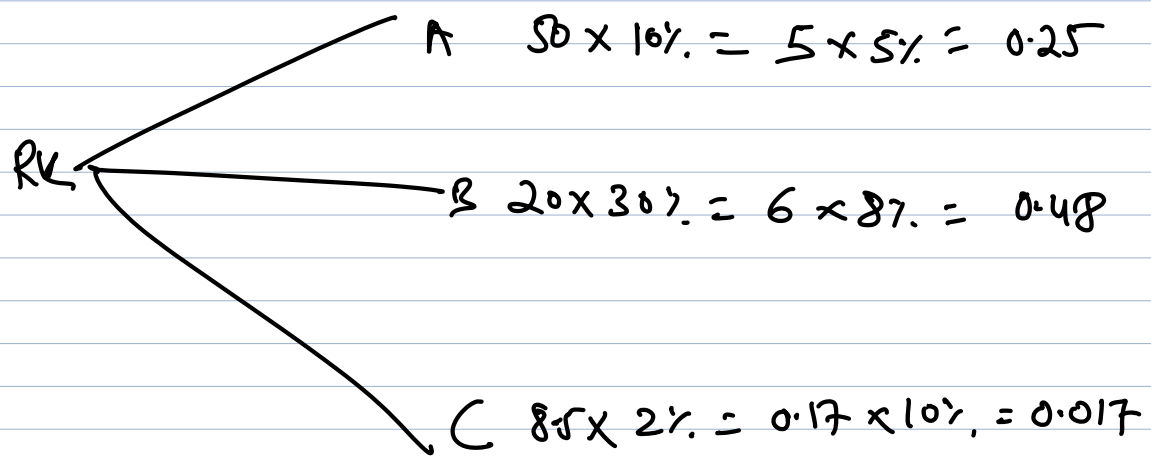 A 50 × 10% = 5 × 5% = 0.25
RK
B 20 × 30% = 6 × 8% = 0.48
C 8.5 × 2% = 0.17 × 10% = 0.017